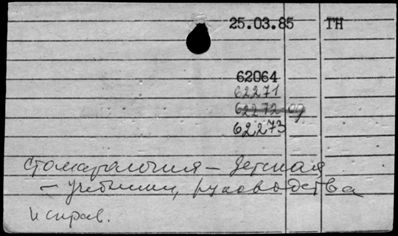 25.03.85 ГН
62064
62271
62272-од
62273
Стоматология - детская
- учебники, руководства
и справ.